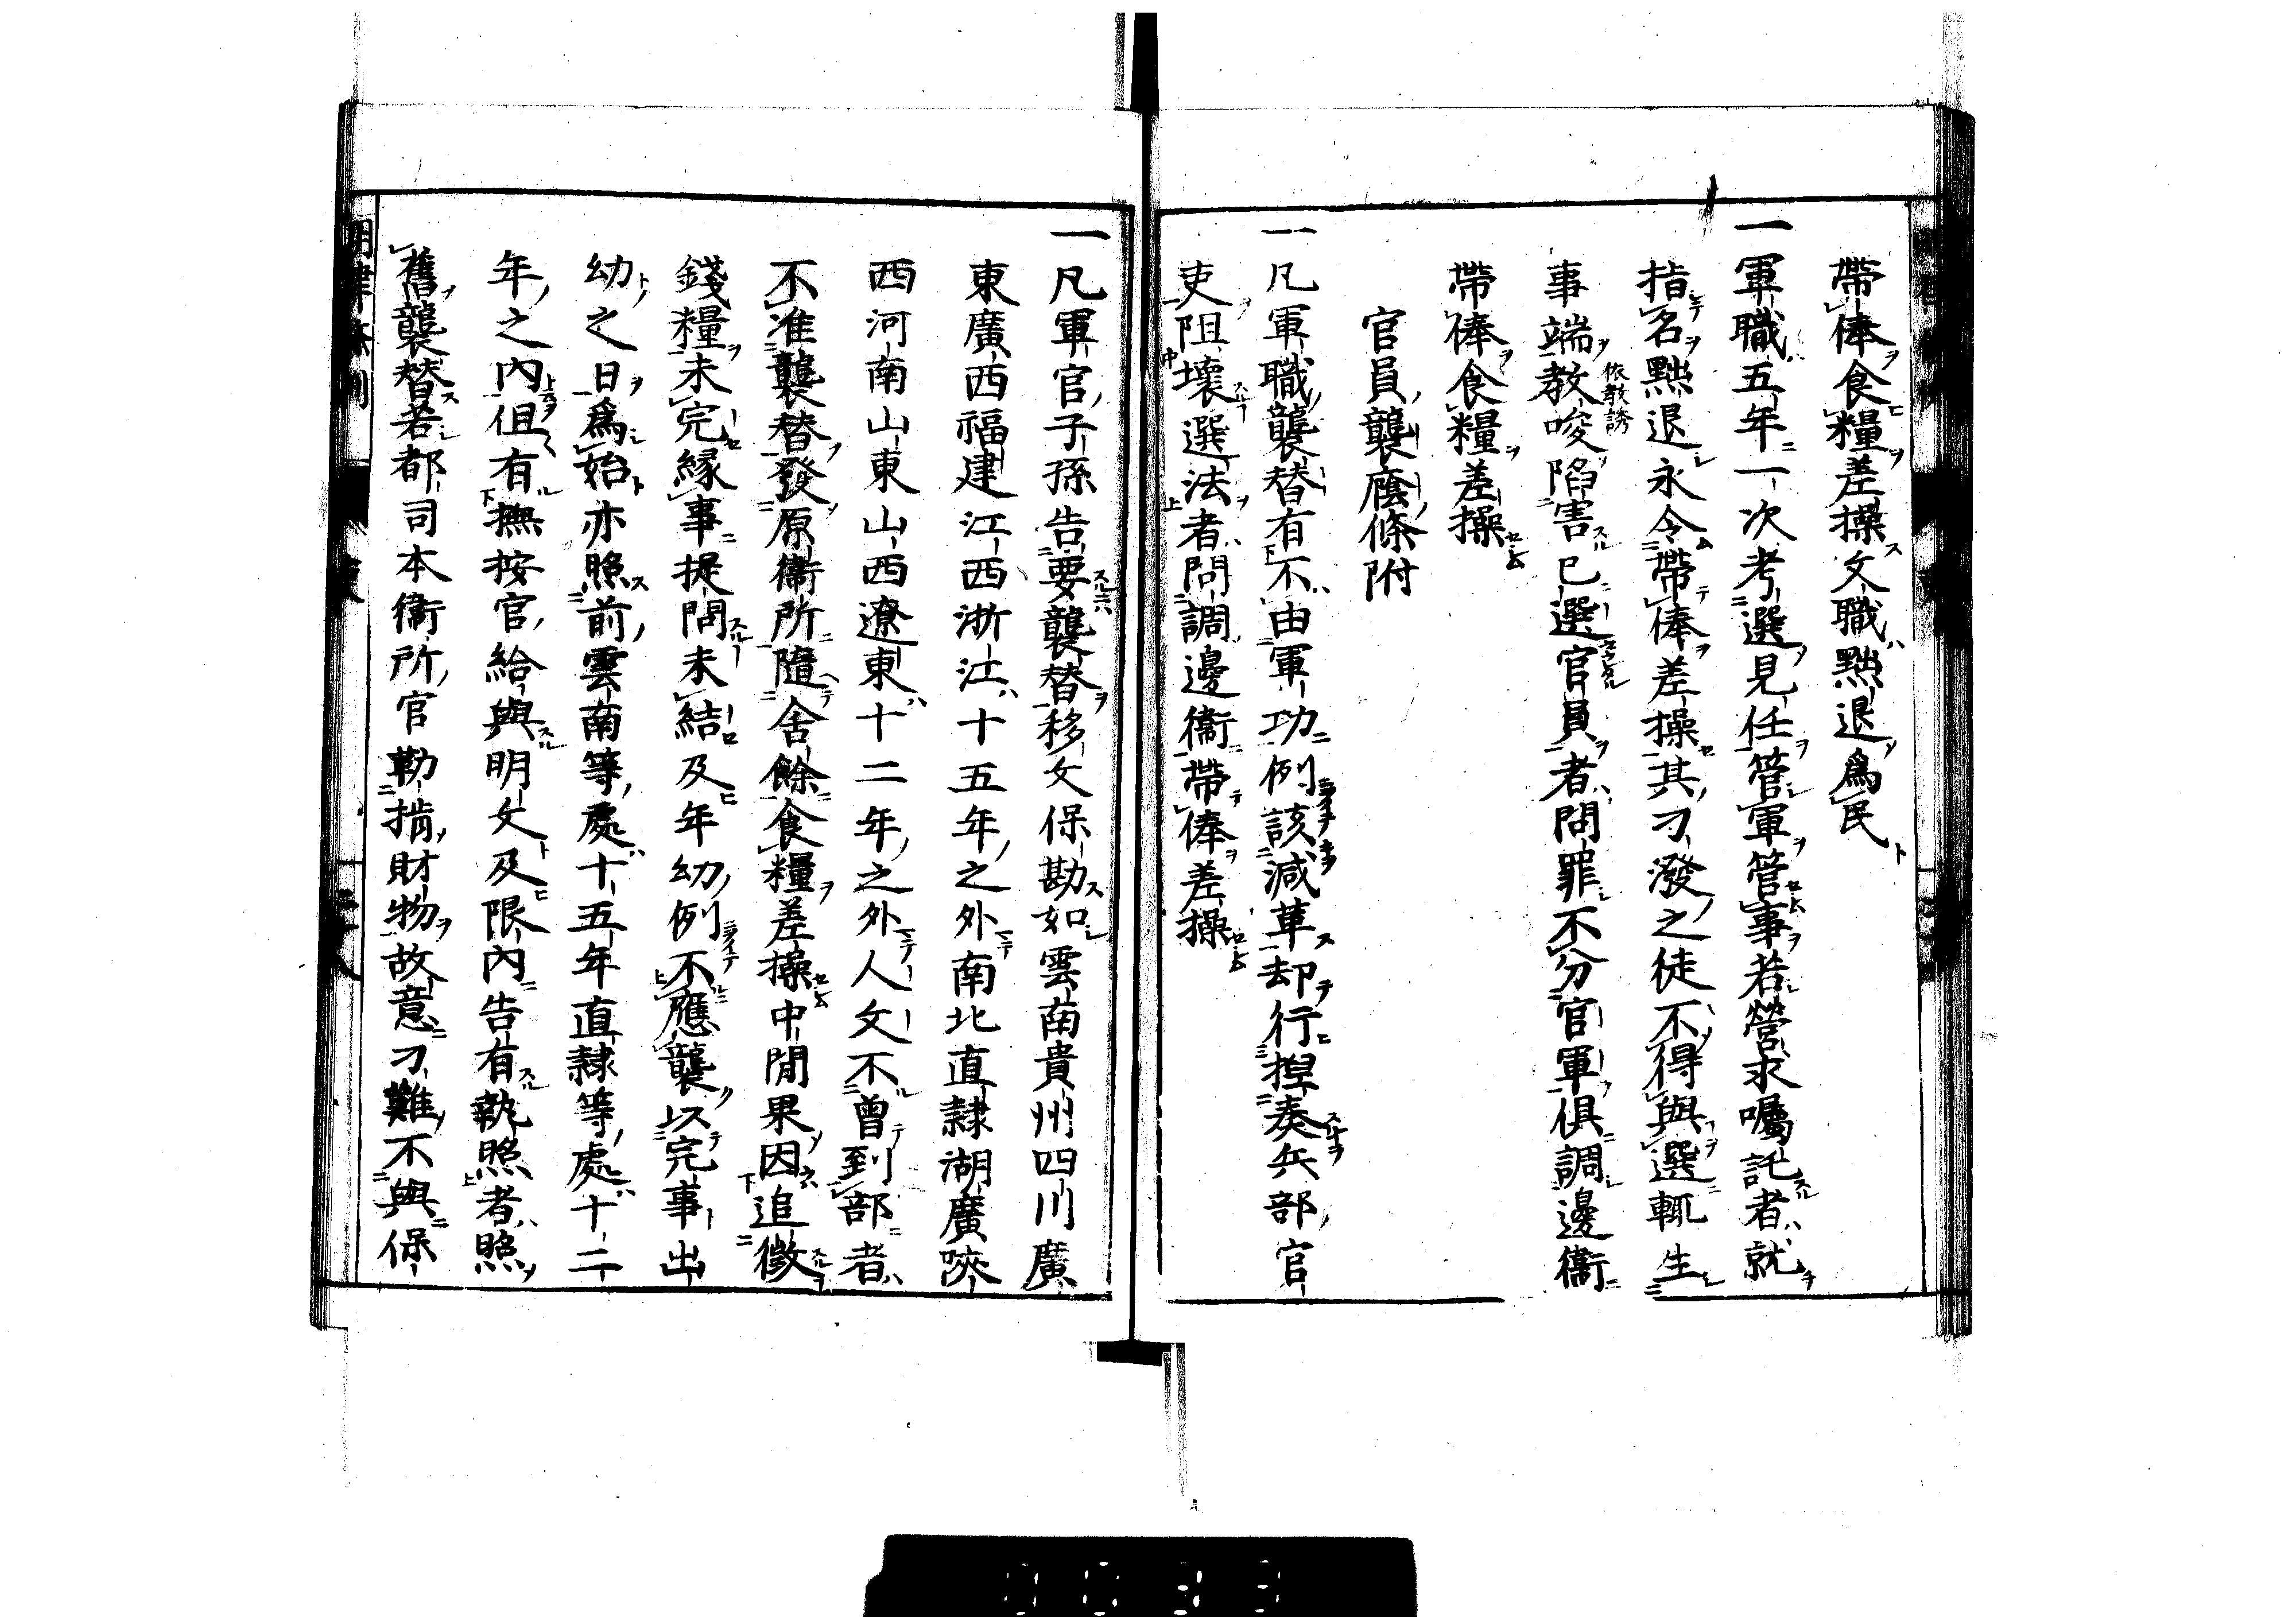 帶俸食糧差操文職黜退爲民
一軍職五年一次考選見任管軍管事若營求囑託者就
指名黜退永令帶俸差操其刁潑之徒不得與選輒生
事端教唆陷害已選官員者問罪不分官軍俱調邊衞
依教誘
帶俸食糧差操
官員襲廕條附
一凡軍職襲替有不由軍功例該減革却行捏奏兵部官
吏阻壞選法者問調邊衞帶俸差操
一凡軍官子孫告要襲替移文保勘如雲南貴州四川廣
東廣西福建江西浙江十五年之外南北直隷湖廣陝
西河南山東山西遼東十二年之外人文不曾到部者
不准襲替發原衞所隨舍餘食糧差操中間果因追徵
錢糧未完縁事提問未結及年幼例不應襲以完事出
幼之日爲始亦照前雲南等處十五年直隷等處十二
年之內但有撫按官給與明文及限內告有執照者照
舊襲替若都司本衞所官勒揹財物故意刁難不與保